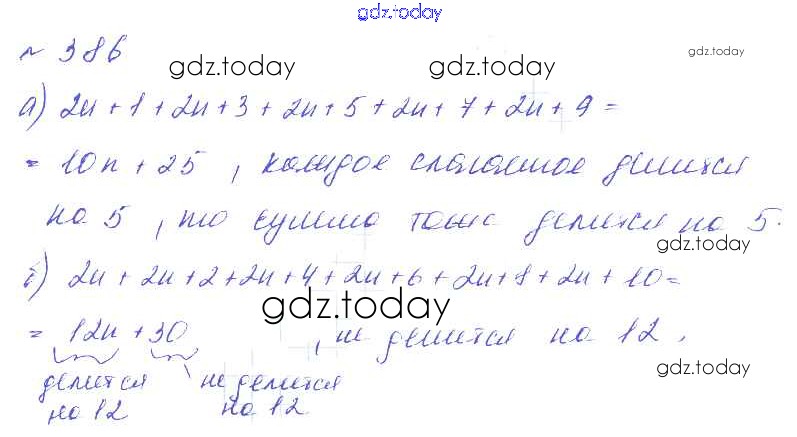 gdz.today
№ 386
gdz.today
gdz.today gdz.today
а) 2n + 1 + 2n + 3 + 2n + 5 + 2n + 7 + 2n + 9 =
= 10n + 25 , каждое слагаемое делится
на 5 , то сумма тоже делится на 5.
gdz.today
б) 2n + 2n + 2 + 2n + 4 + 2n + 6 + 2n + 8 + 2n + 10 =
gdz.today
= 12n + 30 , не делится на 12 .
gdz.today
делится не делится
на 12 на 12